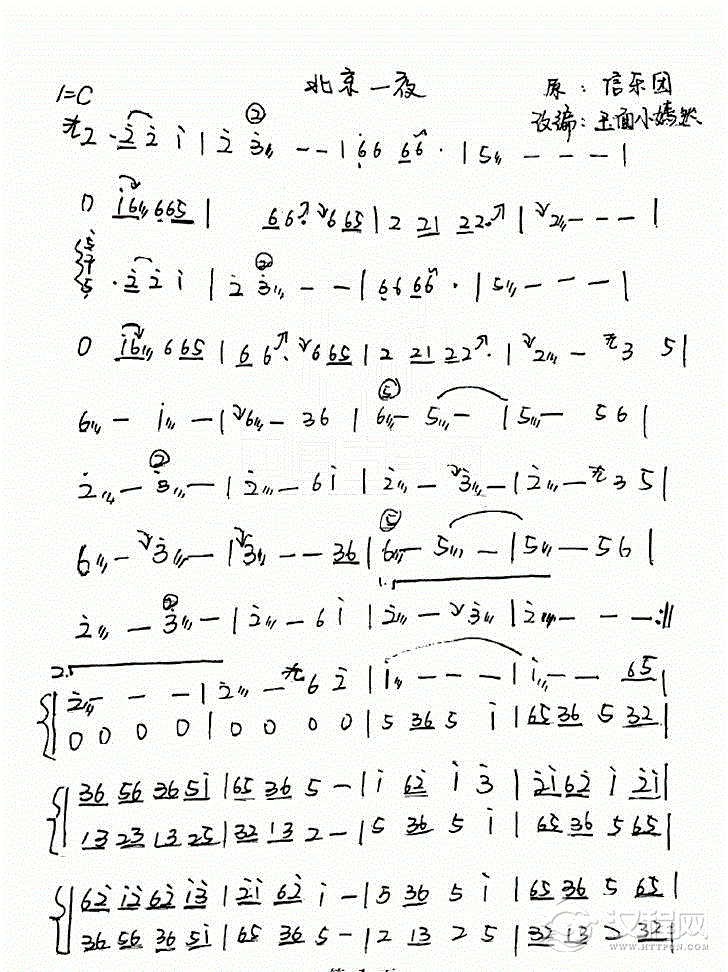 北京一夜
1=C
原：信乐团
改编：玉面小嫣然
2 · 2̇ 2̇ i | 2̇ 3̇ - - | 6 6 6 6 · | 5 - - - |
0 i 6 6 6 5 | 6 6 · 6 6 5 | 2 2 1 2 2 · | 2 - - - |
5 · 2̇ 2̇ i | 2̇ 3̇ - - | 6 6 6 6 · | 5 - - - |
0 i 6 6 6 5 | 6 6 · 6 6 5 | 2 2 1 2 2 · | 2 - 3 5 |
6 - i - | 6 - 3 6 | 6 - 5 - | 5 - 5 6 |
2̇ - 3̇ - | 2̇ - 6 i | 2̇ - 3̇ - | 2̇ - 3 5 |
6 - 3̇ - | 3̇ - - 3 6 | 6 - 5 - | 5 - 5 6 |
1.
2̇ - 3̇ - | 2̇ - 6 i | 2̇ - 3̇ | 2̇ - - - :||
2.
2̇ - - - | 2̇ - 6 2̇ | i - - - | i - - 6 5 |
0 0 0 0 | 0 0 0 0 | 5 3 6 5 i | 6 5 3 6 5 3 2 |
3 6 5 6 3 6 5 i | 6 5 3 6 5 - | i 6 2̇ i 3̇ | 2̇ i 6 2̇ i 2̇ i |
1 3 2 3 1 3 2 5 | 3 2 1 3 2 - | 5 3 6 5 i | 6 5 3 6 5 6 5 |
6 2̇ i 2̇ 6 2̇ i 3̇ | 2̇ i 6 2̇ i - | 5 3 6 5 i | 6 5 3 6 5 6 5 |
3 6 5 6 3 6 5 i | 6 5 3 6 5 - | 2 1 3 2 5 | 3 2 1 3 2 3 2 |
汉程网
HTTPCN.COM